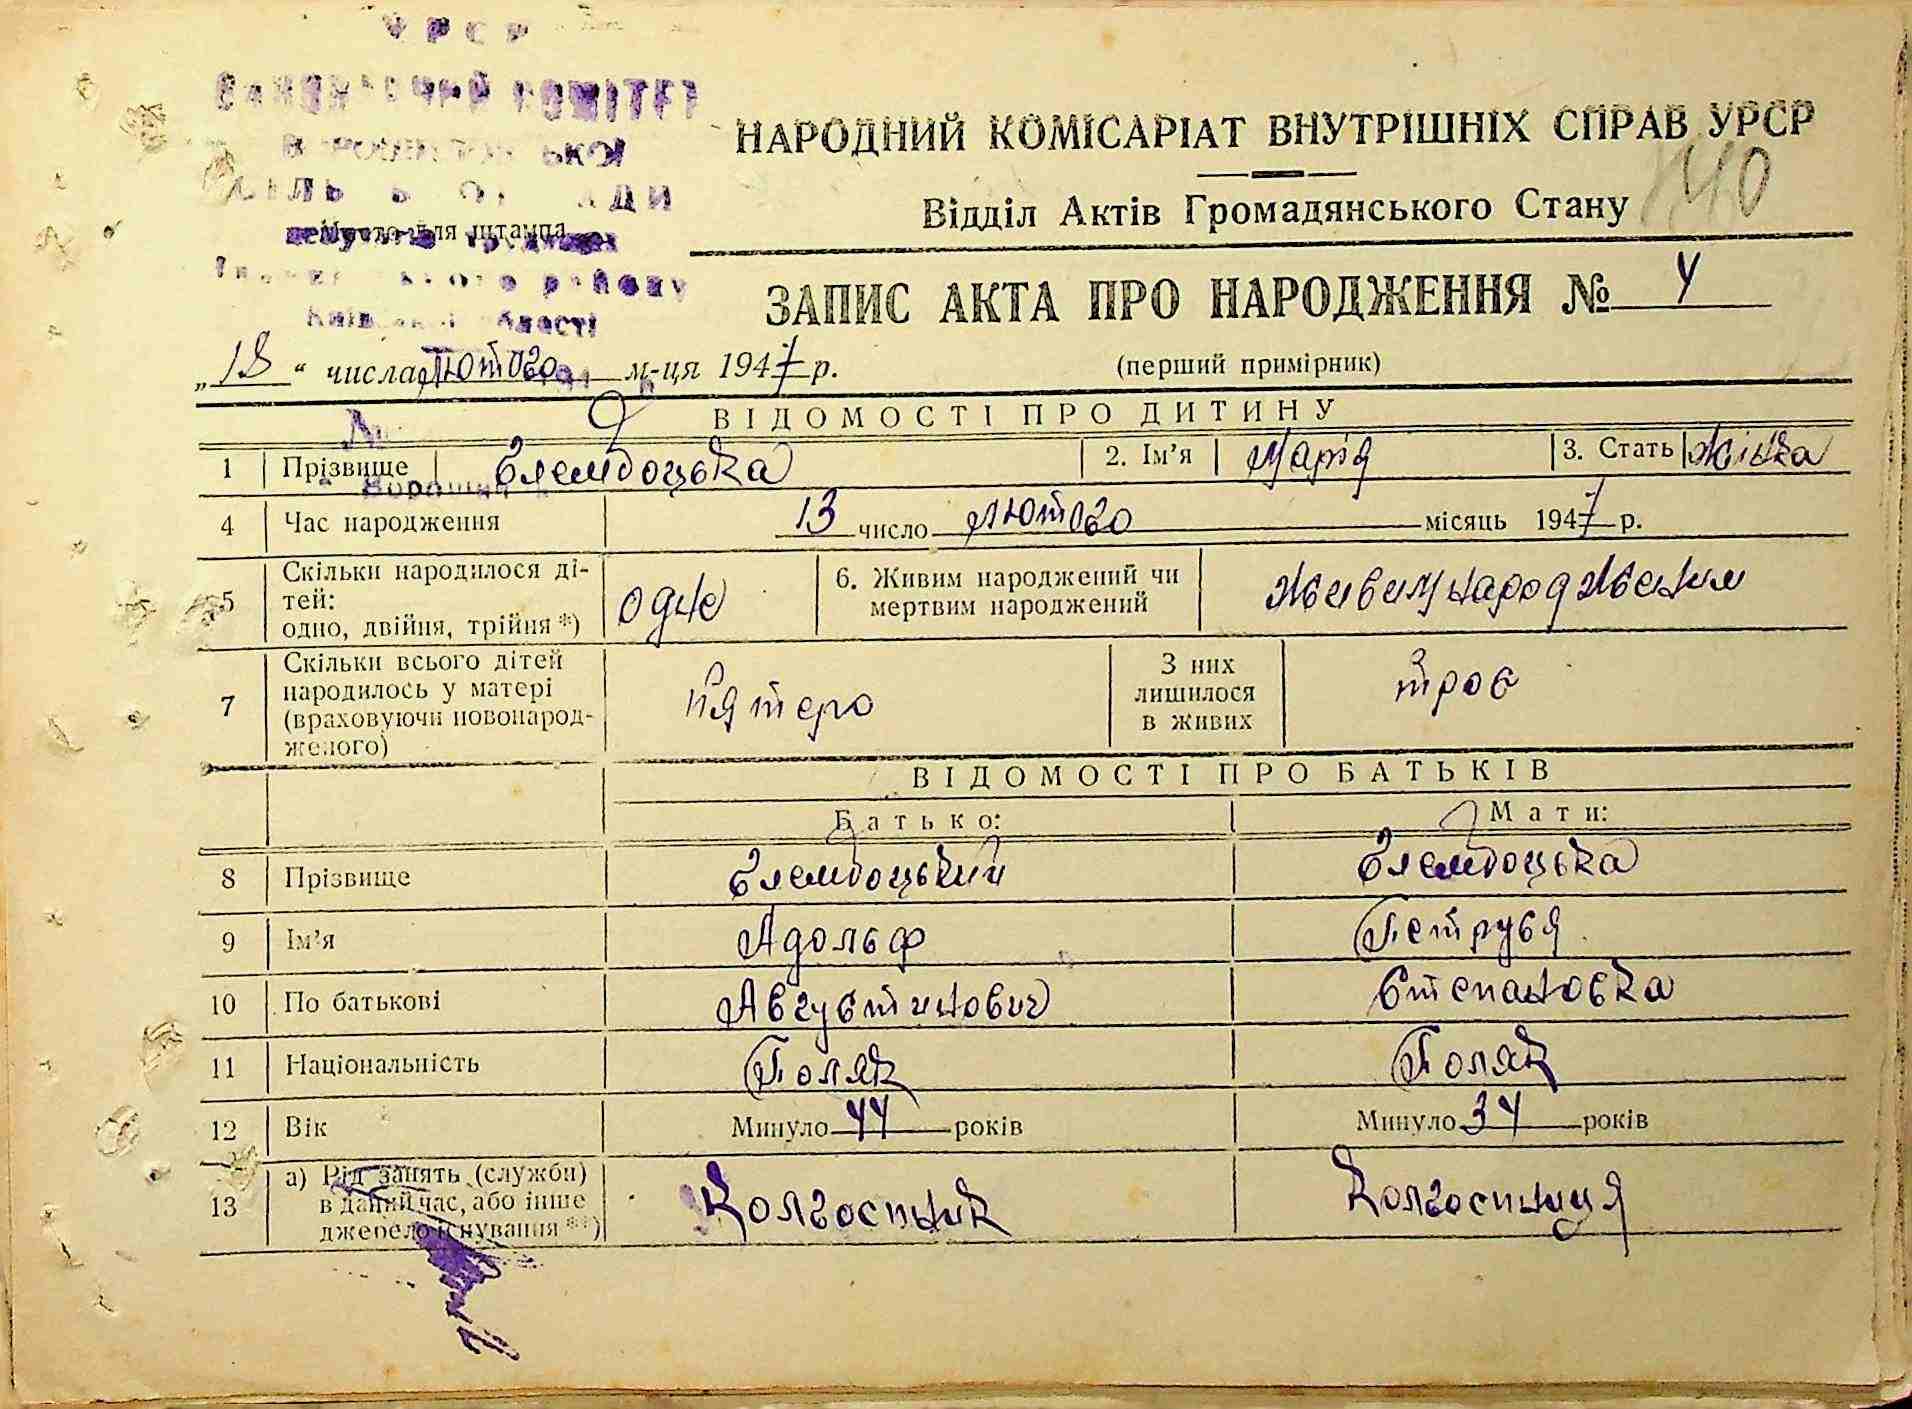 УРСР
КОМІТЕТ
району
НАРОДНИЙ КОМІСАРІАТ ВНУТРІШНІХ СПРАВ УРСР
140
Відділ Актів Громадянського Стану
Место для штампа
ЗАПИС АКТА ПРО НАРОДЖЕННЯ № 4
„18" числа лютого м-ця 1947 р.
(перший примірник)
№
ВІДОМОСТІ ПРО ДИТИНУ
1 Прізвище Глембоцька 2. Ім'я Марія 3. Стать жінка
4 Час народження 13 число лютого місяць 1947 р.
5 Скільки народилося ді-
тей:
одно, двійня, трійня *) одне
6. Живим народжений чи
мертвим народжений живим народженим
7 Скільки всього дітей
народилось у матері
(враховуючи новонарод-
желого) пятеро
З них
лишилося
в живих троє
ВІДОМОСТІ ПРО БАТЬКІВ
Батько: Мати:
8 Прізвище Глембоцький Глембоцька
9 Ім'я Адольф Петруня
10 По батькові Августинович Степановка
11 Національність Поляк Поляк
12 Вік Минуло 44 років Минуло 34 років
13 а) Рід занять (служби)
в даний час, або інше
джерело існування **) Колгоспник Колгоспниця